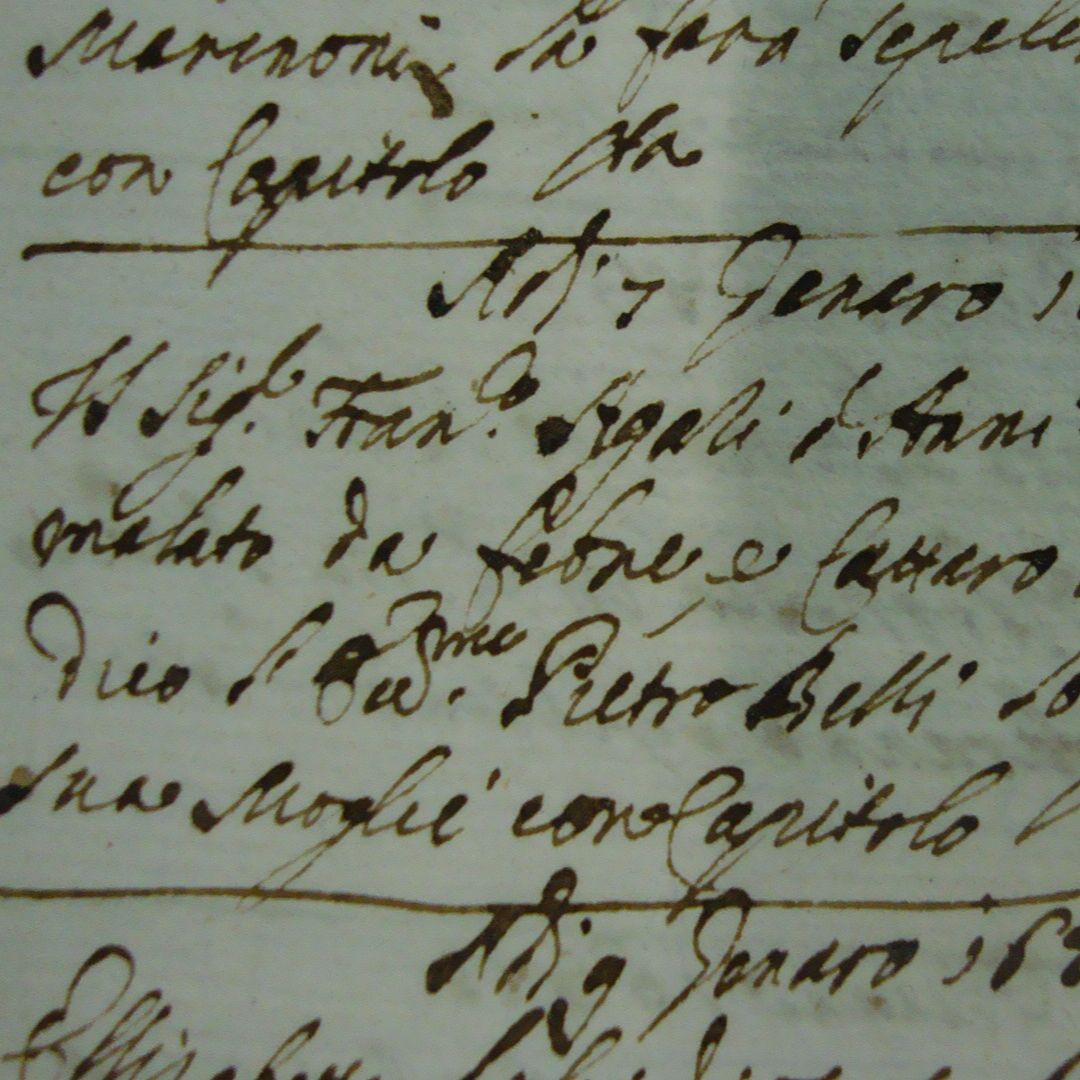 Marinoni la farà sepelir
con Capitolo sta
Adi 7 Genaro 1
Il Sig.r Fran.co Segali d'Anni
malato da febre, e Cattaro
dico Pietro Belli
sua Moglie con Capitolo
Adi 9 Genaro 16